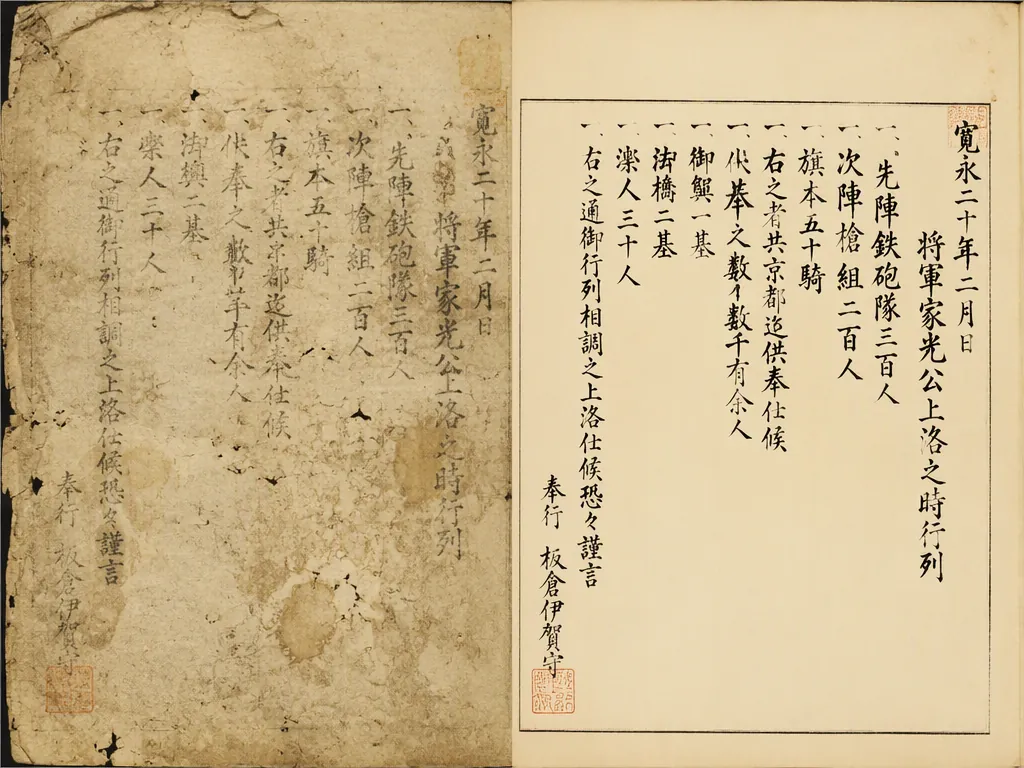 寛永二十年二月日
将軍家光公上洛之時行列
一、先陣鉄砲隊三百人
一、次陣槍組二百人
一、旗本五十騎
一、右之者共京都迄供奉仕候
一、供奉之数
有余人
一、御輿二基
一、楽人三十人
一、右之通御行列相調之上洛仕候恐々謹言
奉行 板倉伊賀守
寛永二十年二月日
将軍家光公上洛之時行列
一、先陣鉄砲隊三百人
一、次陣槍組二百人
一、旗本五十騎
一、右之者共京都迄供奉仕候
一、
之数
数千有余人
一、御
一基
一、御橋二基
一、
人三十人
一、右之通御行列相調之上洛仕候恐々謹言
奉行 板倉伊賀守